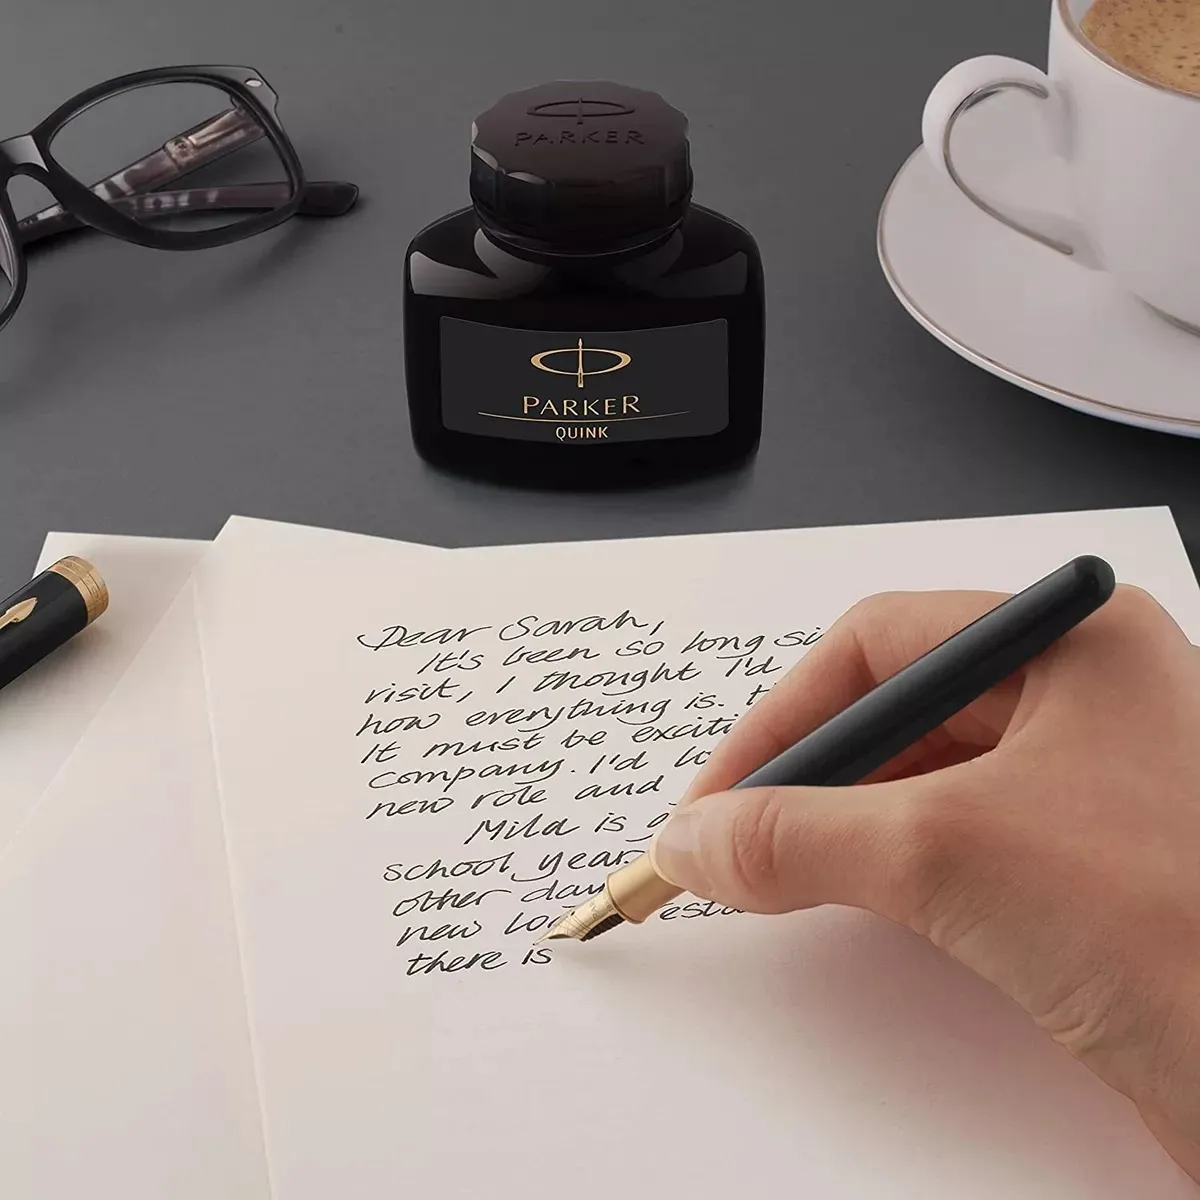 PARKER
PARKER
QUINK
Dear Sarah,
It's been so long si
visit, I thought I'd
how everything is. t
It must be exciti
company. I'd lo
new role and
Mila is a
school year
other day
new lo esta
there is